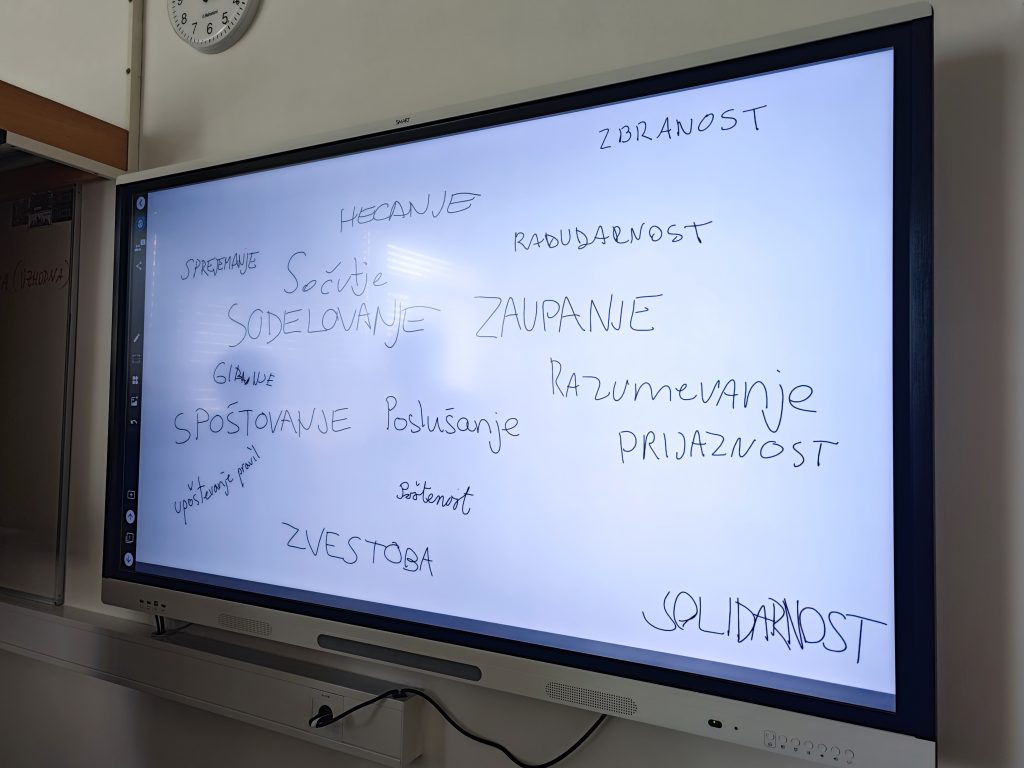 SMART
ZBRANOST
HECANJE
RADUDARNOST
SPREJEMANJE
Sočutje
SODELOVANJE
ZAUPANJE
GIBANJE
RAZUMEVANJE
SPOŠTOVANJE
Poslušanje
PRIJAZNOST
upoštevanje pravil
Poštenost
ZVESTOBA
SOLIDARNOST
(VZHODNA)
9
8
7
6
5
4